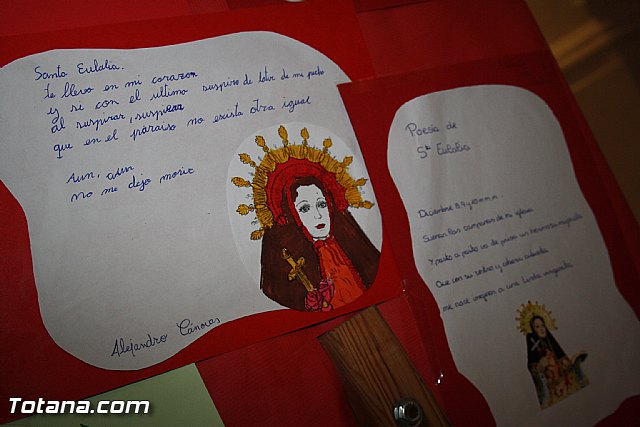 Santa Eulalia.
te llevo en mi corazon
y si con el ultimo suspiro de latir de mi pecho
al suspirar, suspirar
que en el paraiso no exista otra igual
Aun, aun
no me dejo morir
Alejandro Cánovas
Poesía de
Sta Eulalia
Diciembre 8 y 10 a.m.
Suenan las campanas de mi iglesia
Y paso a paso va de prisa un hermoso
Que con su rostro y cabeza cubierta
me hace a una linda
Totana.com